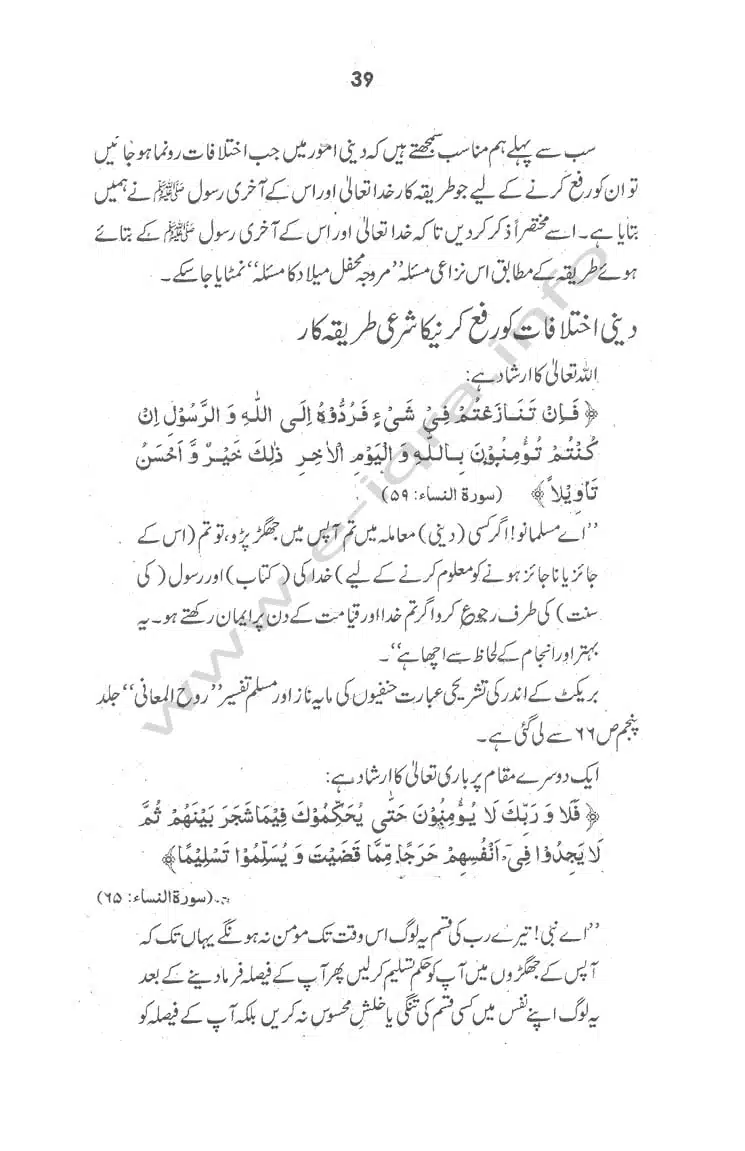 39
سب سے پہلے ہم مناسب سمجھتے ہیں کہ دینی امور میں جب اختلافات رونما ہو جائیں
تو ان کو رفع کرنے کے لیے جو طریقہ کار خدا تعالیٰ اور اس کے آخری رسول ﷺ نے ہمیں
بتایا ہے۔ اسے مختصراً ذکر کر دیں تا کہ خدا تعالیٰ اور اس کے آخری رسول ﷺ کے بتائے
ہوئے طریقہ کے مطابق اس نزاعی مسئلہ ”مروجہ محفل میلاد کا مسئلہ“ نمٹایا جا سکے۔
دینی اختلافات کو رفع کرنیکا شرعی طریقہ کار
اللہ تعالیٰ کا ارشاد ہے:
﴿فَاِنْ تَنَازَعْتُمْ فِیْ شَیْءٍ فَرُدُّوْهُ اِلَی اللّٰهِ وَ الرَّسُوْلِ اِنْ
كُنْتُمْ تُؤْمِنُوْنَ بِاللّٰهِ وَ الْیَوْمِ الْاٰخِرِ ذٰلِكَ خَیْرٌ وَّ اَحْسَنُ
تَاْوِیْلاً﴾ (سورة النساء: ۵۹)
”اے مسلمانو! اگر کسی (دینی) معاملہ میں تم آپس میں جھگڑ پڑو، تو تم (اس کے
جائز یا ناجائز ہونے کو معلوم کرنے کے لیے) خدا کی (کتاب) اور رسول (کی
سنت) کی طرف رجوع کرو اگر تم خدا اور قیامت کے دن پر ایمان رکھتے ہو۔ یہ
بہتر اور انجام کے لحاظ سے اچھا ہے“۔
بریکٹ کے اندر کی تشریحی عبارت حنفیوں کی مایہ ناز اور مسلم تفسیر ”روح المعانی“ جلد
پنجم ص ۶۶ سے لی گئی ہے۔
ایک دوسرے مقام پر باری تعالیٰ کا ارشاد ہے:
﴿فَلَا وَ رَبِّكَ لَا یُؤْمِنُوْنَ حَتّٰی یُحَكِّمُوْكَ فِیْمَا شَجَرَ بَیْنَهُمْ ثُمَّ
لَا یَجِدُوْا فِیْۤ اَنْفُسِهِمْ حَرَجًا مِّمَّا قَضَیْتَ وَ یُسَلِّمُوْا تَسْلِیْمًا﴾
(سورة النساء: ۶۵)
”اے نبی! تیرے رب کی قسم یہ لوگ اس وقت تک مومن نہ ہونگے یہاں تک کہ
آپس کے جھگڑوں میں آپ کو حکم تسلیم کرلیں پھر آپ کے فیصلہ فرما دینے کے بعد
یہ لوگ اپنے نفس میں کسی قسم کی تنگی یا خلش محسوس نہ کریں بلکہ آپ کے فیصلہ کو
www.e-iqra.info